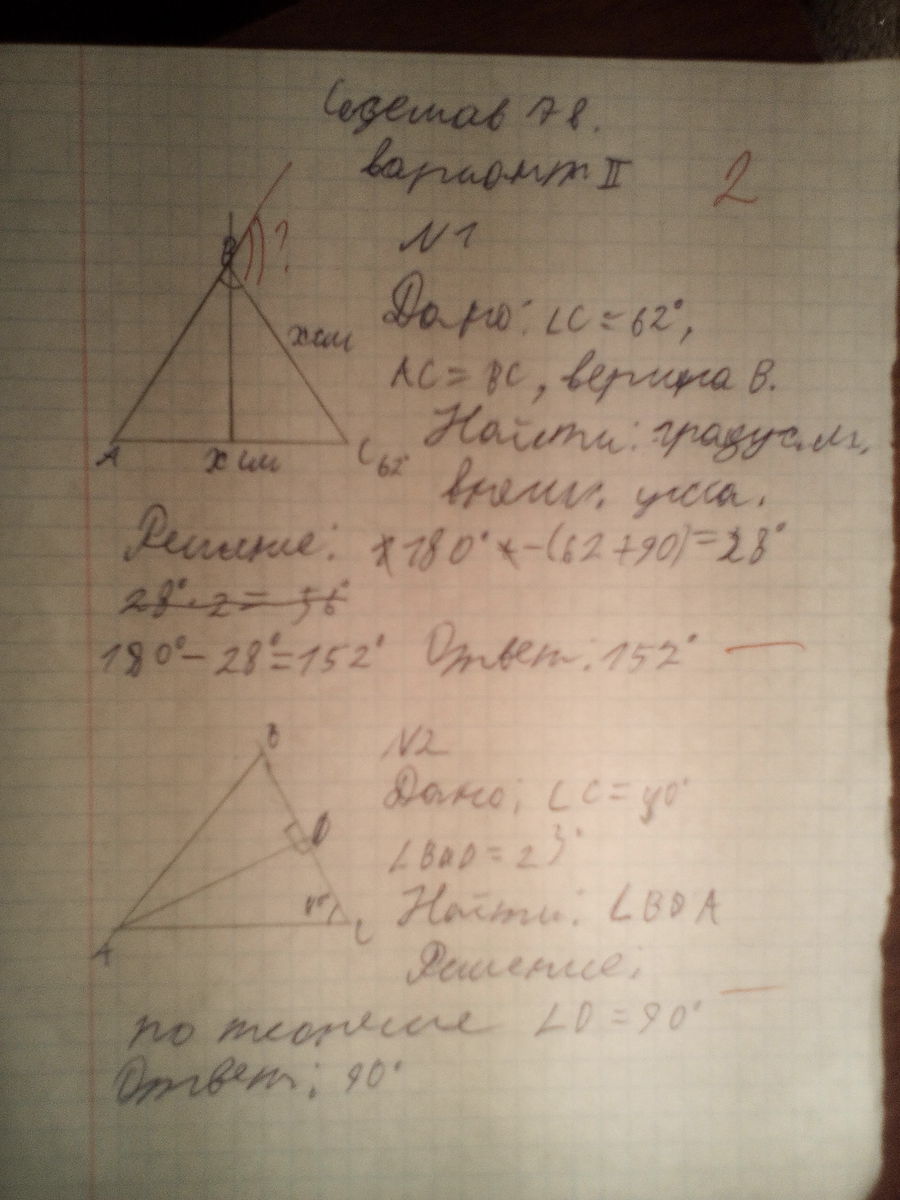 7 В.
вариант II
2
N 1
В
?
Дано: ∠C = 62°,
x см
AC = BC, вершина В.
Найти: градус. м.
A
x см
C 62°
внеш. угла.
Решение: 180° - (62 + 90) = 28°
28° · 2 = 56°
180° - 28° = 152° Ответ: 152°
В
N2
Дано: ∠C =
D
∠BAD =
Найти: ∠BDA
A
C
Решение:
по теореме ∠D = 90°
Ответ: 90°